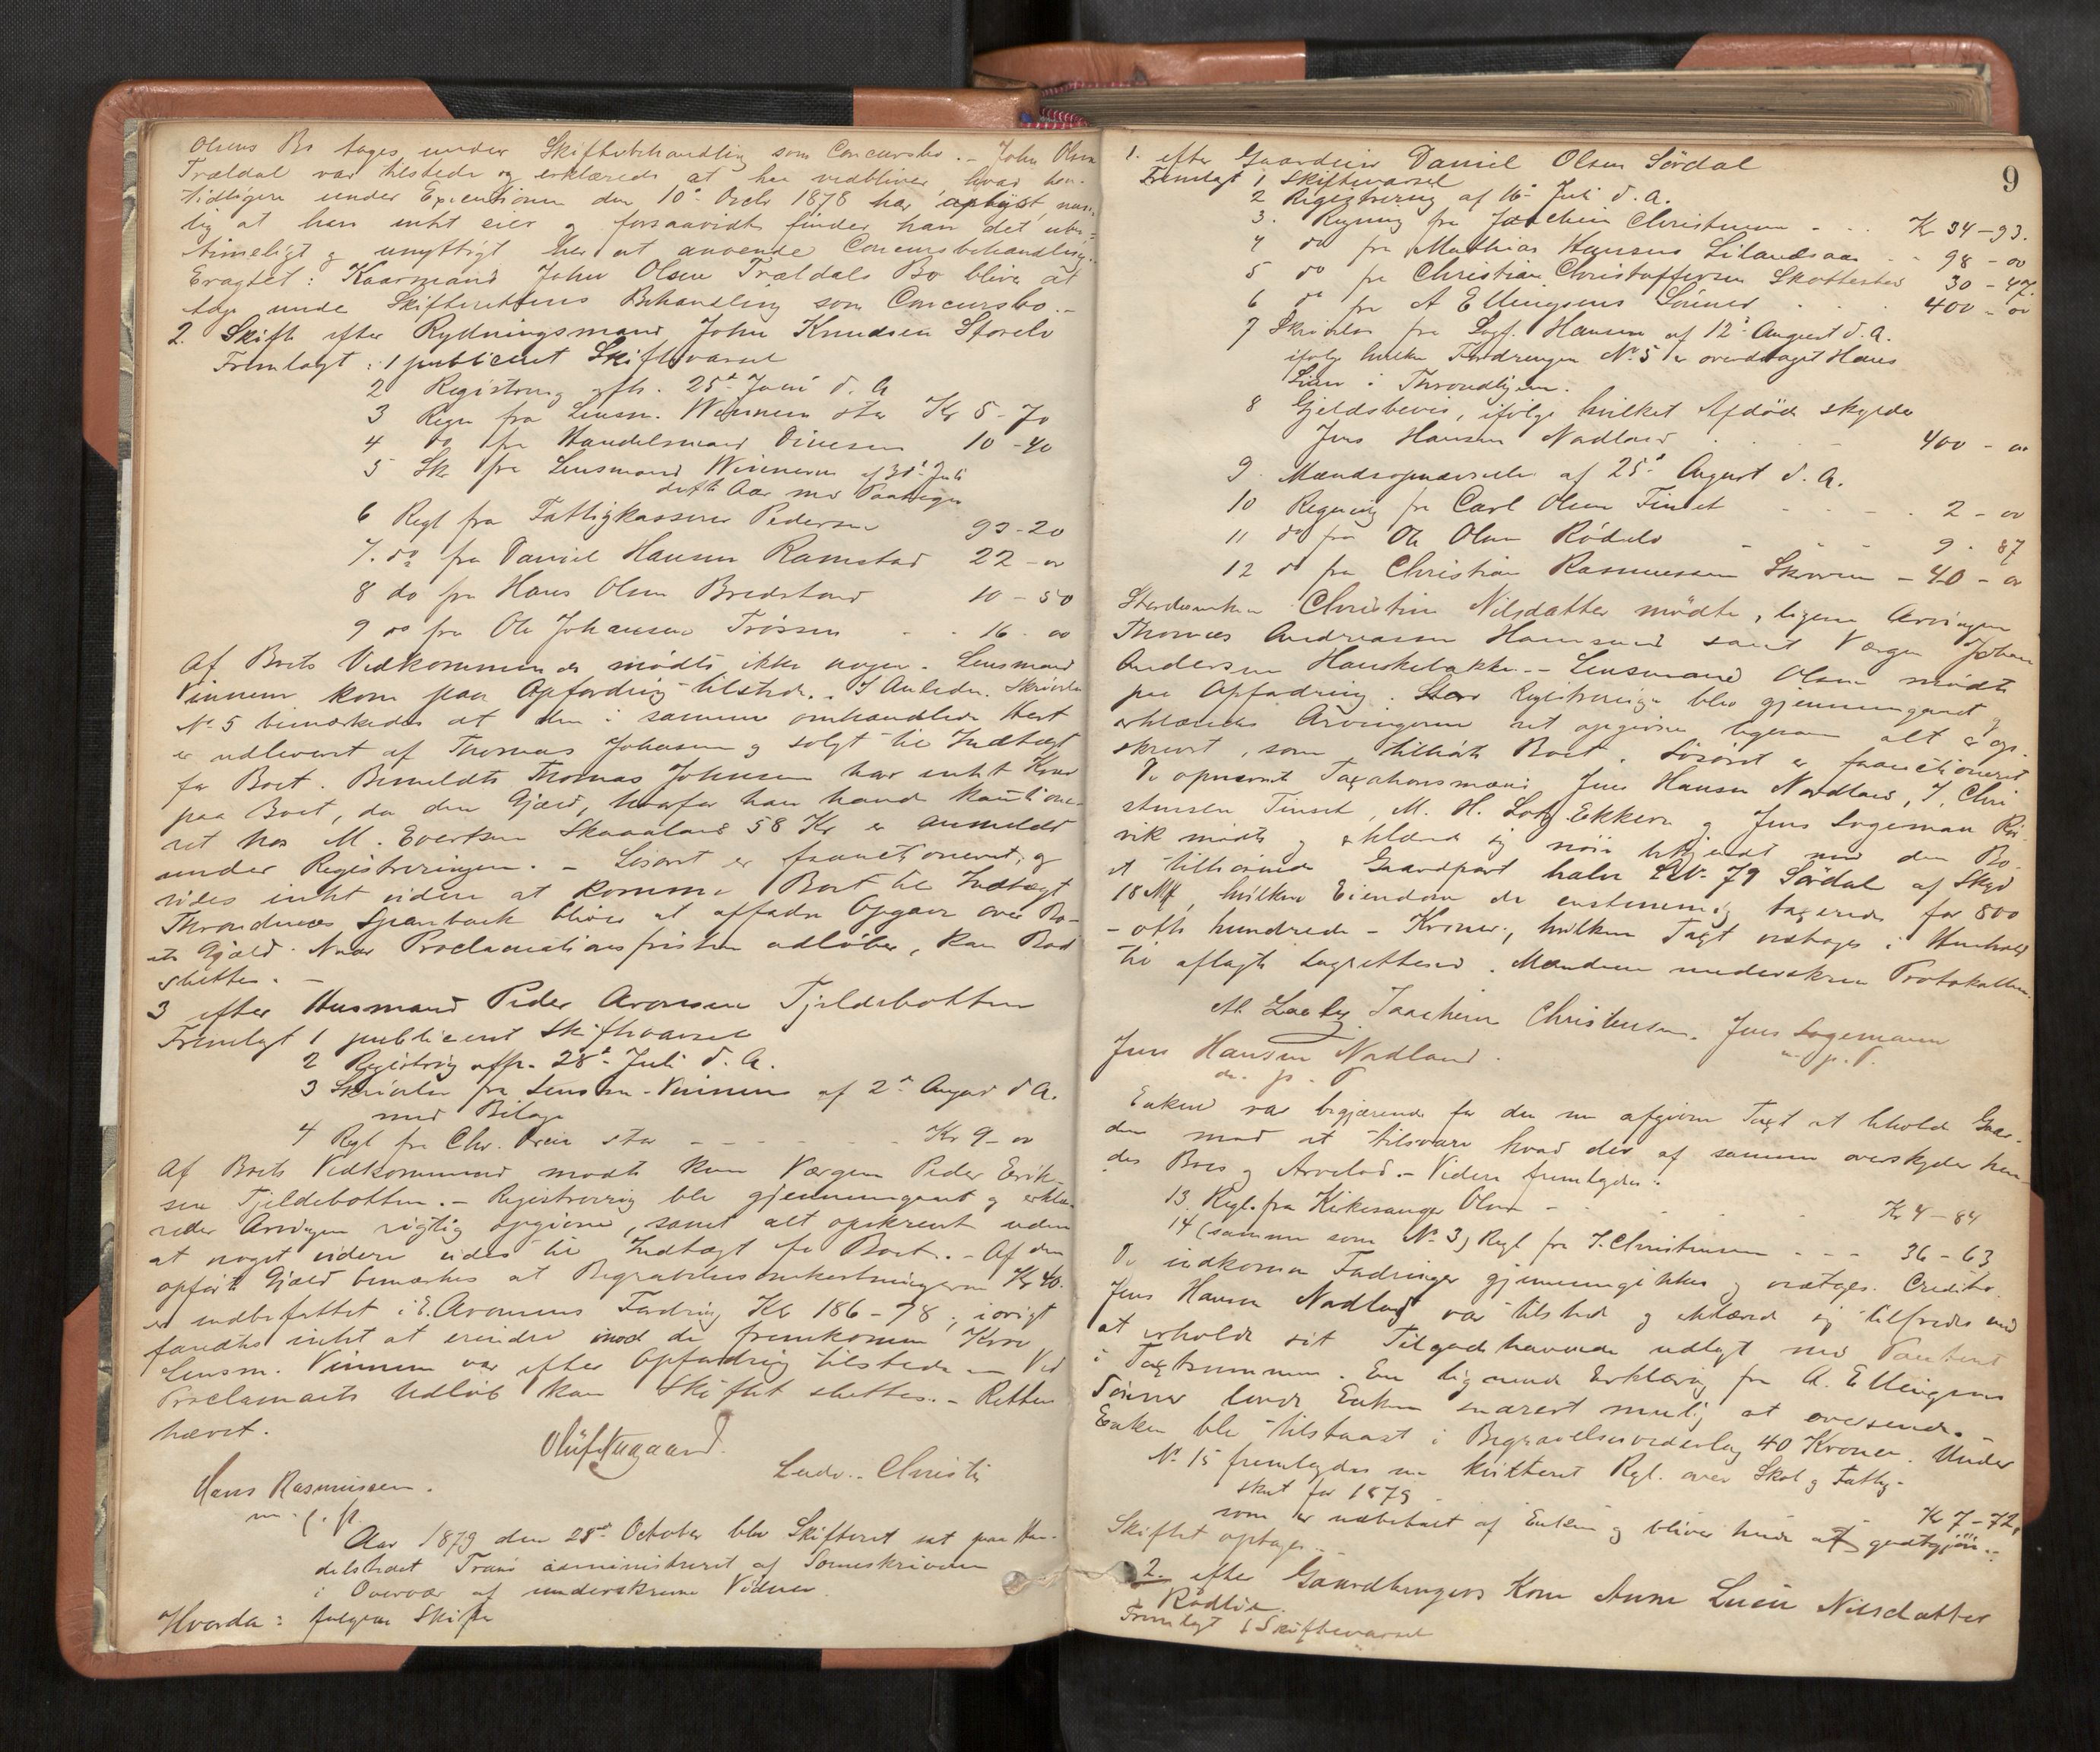 Olsens Bo tages under Skiftebehandling som Concursbo. - John Olsen
Trældal var tilstede og erklærede at han vedbliver, hvad han
tidligere under Executionen den 10de Octbr 1878 har oplyst, nem-
lig at han intet eier og forsaavidt finder han det ube-
timeligt og unyttigt her at anvende Concursbehandling.
Eragtet: Kaarmand John Olsen Trældals Bo bliver at
tage under Skifterettens Behandling som Concursbo. -
2. Skifte efter Rydningsmand John Knudsen Storelv
Fremlagt: 1 publiceret Skiftevarsel
2 Registrering afh. 25de Juni d. A
3 Regn fra Lensm. Winnem stor Kr 5-70
4 do fra Handelsmand Divesen 10-40
5 Skr fra Lensmand Winnem af 31te Juli
dette Aar med Paategn
6 Regl fra Fattigkasserer Pedersen 93-20
7. do fra Daniel Hansen Ramstad 22-oo
8 do fra Hans Olsen Bredstrand 10-50
9 do fra Ole Johansen Trøssen - - 16-oo
Af Boets Vedkommende mødte ikke nogen. Lensmand
Vinnem kom paa Opfordring tilstede. I Anledn. Skrivelse
No 5 bemærkedes at den i samme omhandlede Hest
er udleveret af Thomas Johnsen og solgt til Indtægt
for Boet. Bemeldte Thomas Johnsen har intet Krav
paa Boet, da den Gjæld, hvorfor han havde kautione-
ret hos M. Evertsen Skaaland 58 Kr er anmeldt
under Registreringen. - Løsøret er fraauctioneret, og
vides intet videre at komme Boet til Indtægt
Throndenæs Sparebank bliver at affordre Opgave over Bo-
ets Gjæld. Naar Proclamationsfristen udløber, kan Boet
sluttes. -
3 efter Husmand Peder Aronsen Tjeldebotten
Fremlagt 1 publiceret Skiftevarsel
2 Registrering afh. 28de Juli d. A.
3 Skrivelse fra Lensm. Vinnem af 2den August d A.
med Bilage
4 Regl fra Chr. Dreier stor - - - - - Kr 9-oo
Af Boets Vedkommende mødte kun Værgen Peder Erik-
sen Tjeldebotten. - Registrering ble gjennemgaaet og erklæ-
redes Arvingen rigtig opgivne, samt alt opskrevet uden
at noget videre vides til Indtægt for Boet. - Af den
opførte Gjæld bemærkes at Begravelsesomkostningerne Kr 40.
er indbefattet i E. Aronsens Fordring Kr 186-78; iøvrigt
fandtes intet at erindre imod de fremkomne Krav
Lensm. Vinnem var efter Opfordring tilstede - Ved
Proclamaets Udløb kan Skiftet sluttes. - Retten
hævet.
Oluf Nygaard.
Ludv. Christi
Hans Rasmussen.
m. f. p.
Aar 1879 den 28de October blev Skifteret sat paa Han-
delstedet Tranø administreret af Sorenskriveren
i Overvær af underskrevne Vidner
Hvorda: følgende Skifte
9
1. efter Gaardeier Daniel Olsen Sørdal
Fremlagt 1 Skiftevarsel
2 Registrering af 16de Juli d. A.
3. Regning fra Joachim Christensen - . . Kr 34-93.
4 do fra Mathias Hansens Lilandsaas - - 98-oo
5 do fra Christian Christoffersen Skottestad 30-47.
6 do fra A Ellingsens Sønner . . . 400-oo
7 Skrivelse fra Sagf. Hansen af 12te August d. A.
ifølge hvilken Fordringen No 5 er overdraget Hans
Lien i Throndhjem.
8 Gjeldsbevis, ifølge hvilket Afdøde skylder
Jens Hansen Nordland . . . - 400-oo
9. Mændsopnævnelse af 25de August d. A.
10 Regning fra Carl Olsen Tinset - - - . 2-oo
11 do fra Ole Olsen Rødelv - - - 9-87
12 do fra Christian Rasmussen Skavren - 40-oo
Stervboenken Christine Nilsdatter mødte, ligesaa Arvingen
Thomas Andreassen Hamsund samt Værgen Johan
Andersen Hanskebakken - Lensmand Olsen mødte
paa Opfordring. Registreringen blev gjennemgaaet og
erklæredes Arvingerne ret opgivne ligesom alt er op-
skrevet, som tilhørte Boet. Løsøret er fraauctioneret
De opnævnte Taxationsmænd Jens Hansen Nordland, J. Chri-
stensen Tinset, M. H. Lorh Ekkern og Jens Sogemann Rø-
vik mødte og erklærede sig nøie bekjendt med den Bo-
et tilhørende Gaardpart halve LNo 79 Sørdal af Skyld
18 Mk, hvilken Eiendom de enstemmig taxerede for 800
- otte hundrede - Kroner, hvilken Taxt vedtages i Henhold
til aflagte Lagretteseed. Mændene underskrev Protokollen.
Joachim Christensen. Jens Sogemann
m. p. P.
Jens Hansen Nordland.
m. p. P
Enken var begjærende for den nu afgivne Taxt at beholde Gaar-
den mod at tilsvare hvad der af samme overskyder hen-
des Boes og Arvelod. - Videre fremlagdes:
13. Regl. fra Kirkesanger Olsen - - - - - Kr 4-84
14 (samme som No 3) Regl fra J. Christensen - - - 36-63
De indkomne Fordringer gjennemgikkes og vedtages. Creditor
Jens Hansen Nordland var tilstede og erklærede sig tilfreds med
at erholde sit Tilgodehavende udlagt med Panteret
i Taxtsummen. En lignende Erklæring fra A. Ellingsens
Sønner lovede Enken snarest mulig at oversende.
Enken blev tilstaaet i Begravelsesvederlag 40 Kroner. Under
No 15 fremlagdes en kvitteret Regl. over Skole og Fattig-
skat for 1879 - Kr 7-72,
som er udbetalt af Enken og bliver hende at godtgjøre. -
Skiftet optages. -
2. efter Gaardbrugers Kone Anne Lucie Nilsdatter
Rødlie.
Fremlagt 1 Skiftevarsel